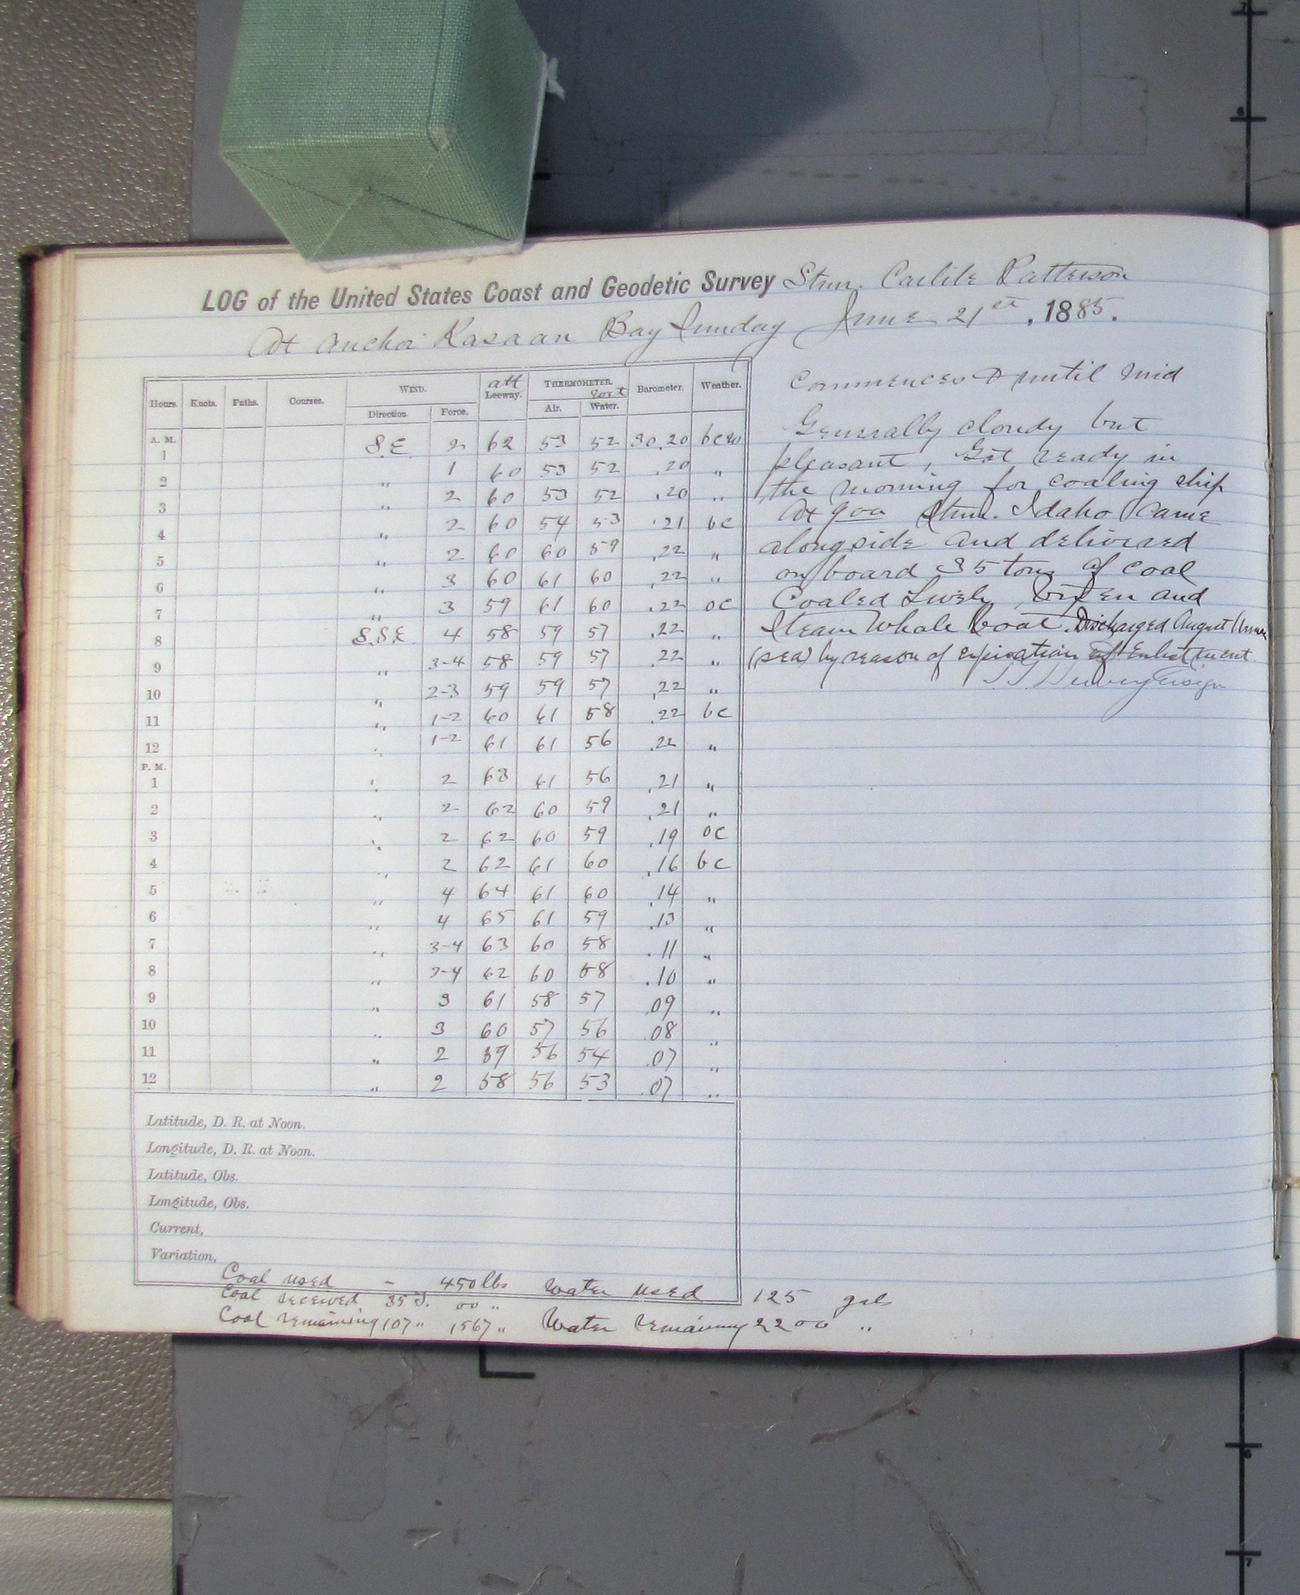 LOG of the United States Coast and Geodetic Survey Stmr. Carlile Patterson
At anchor Kasaan Bay Sunday June 21st, 1885.
Hours. Knots. Faths. Courses. WIND. Direction. Force. att Leeway. THERMOMETER. Air. Water. Barometer. Weather.
A. M.
1 S.E 2 62 53 52 30.20
2 „ 1 60 53 52 .20 „
3 „ 2 60 53 52 .20 „
4 „ 2 60 54 53 .21 bc
5 „ 2 60 60 59 .22 „
6 „ 3 60 61 60 .22 „
7 „ 3 59 61 60 .22 oc
8 S.S.E 4 58 59 57 .22 „
9 „ 3-4 58 59 57 .22 „
10 „ 2-3 59 59 57 .22 „
11 „ 1-2 60 61 58 .22 bc
12 „ 1-2 61 61 56 .22 „
P. M.
1 „ 2 63 61 56 .21 „
2 2 62 60 59 .21 „
3 „ 2 62 60 59 .19 oc
4 „ 2 62 61 60 .16 bc
5 „ 4 64 61 60 .14 „
6 „ 4 65 61 59 .13 „
7 „ 3-4 63 60 58 .11 „
8 „ 3-4 62 60 58 .10 „
9 „ 3 61 58 57 .09 „
10 „ 3 60 57 56 .08 „
11 „ 2 59 56 54 .07 „
12 „ 2 58 56 53 .07 „
Latitude, D. R. at Noon.
Longitude, D. R. at Noon.
Latitude, Obs.
Longitude, Obs.
Current,
Variation,
Coal used - 450 lbs Water used 125 gals
Coal received 35 T. 00 „
Coal remaining 107 „ 1567 „ Water remaining 2200 „
Commences & until mid
Generally cloudy but
pleasant, Got ready in
the morning for coaling ship
At 900 Stmr. Idaho came
alongside and delivered
on board 35 tons of coal
Coaled Lively, and
Steam Whale boat. Discharged August
(sea) by reason of expiration of Enlistment
Ensign